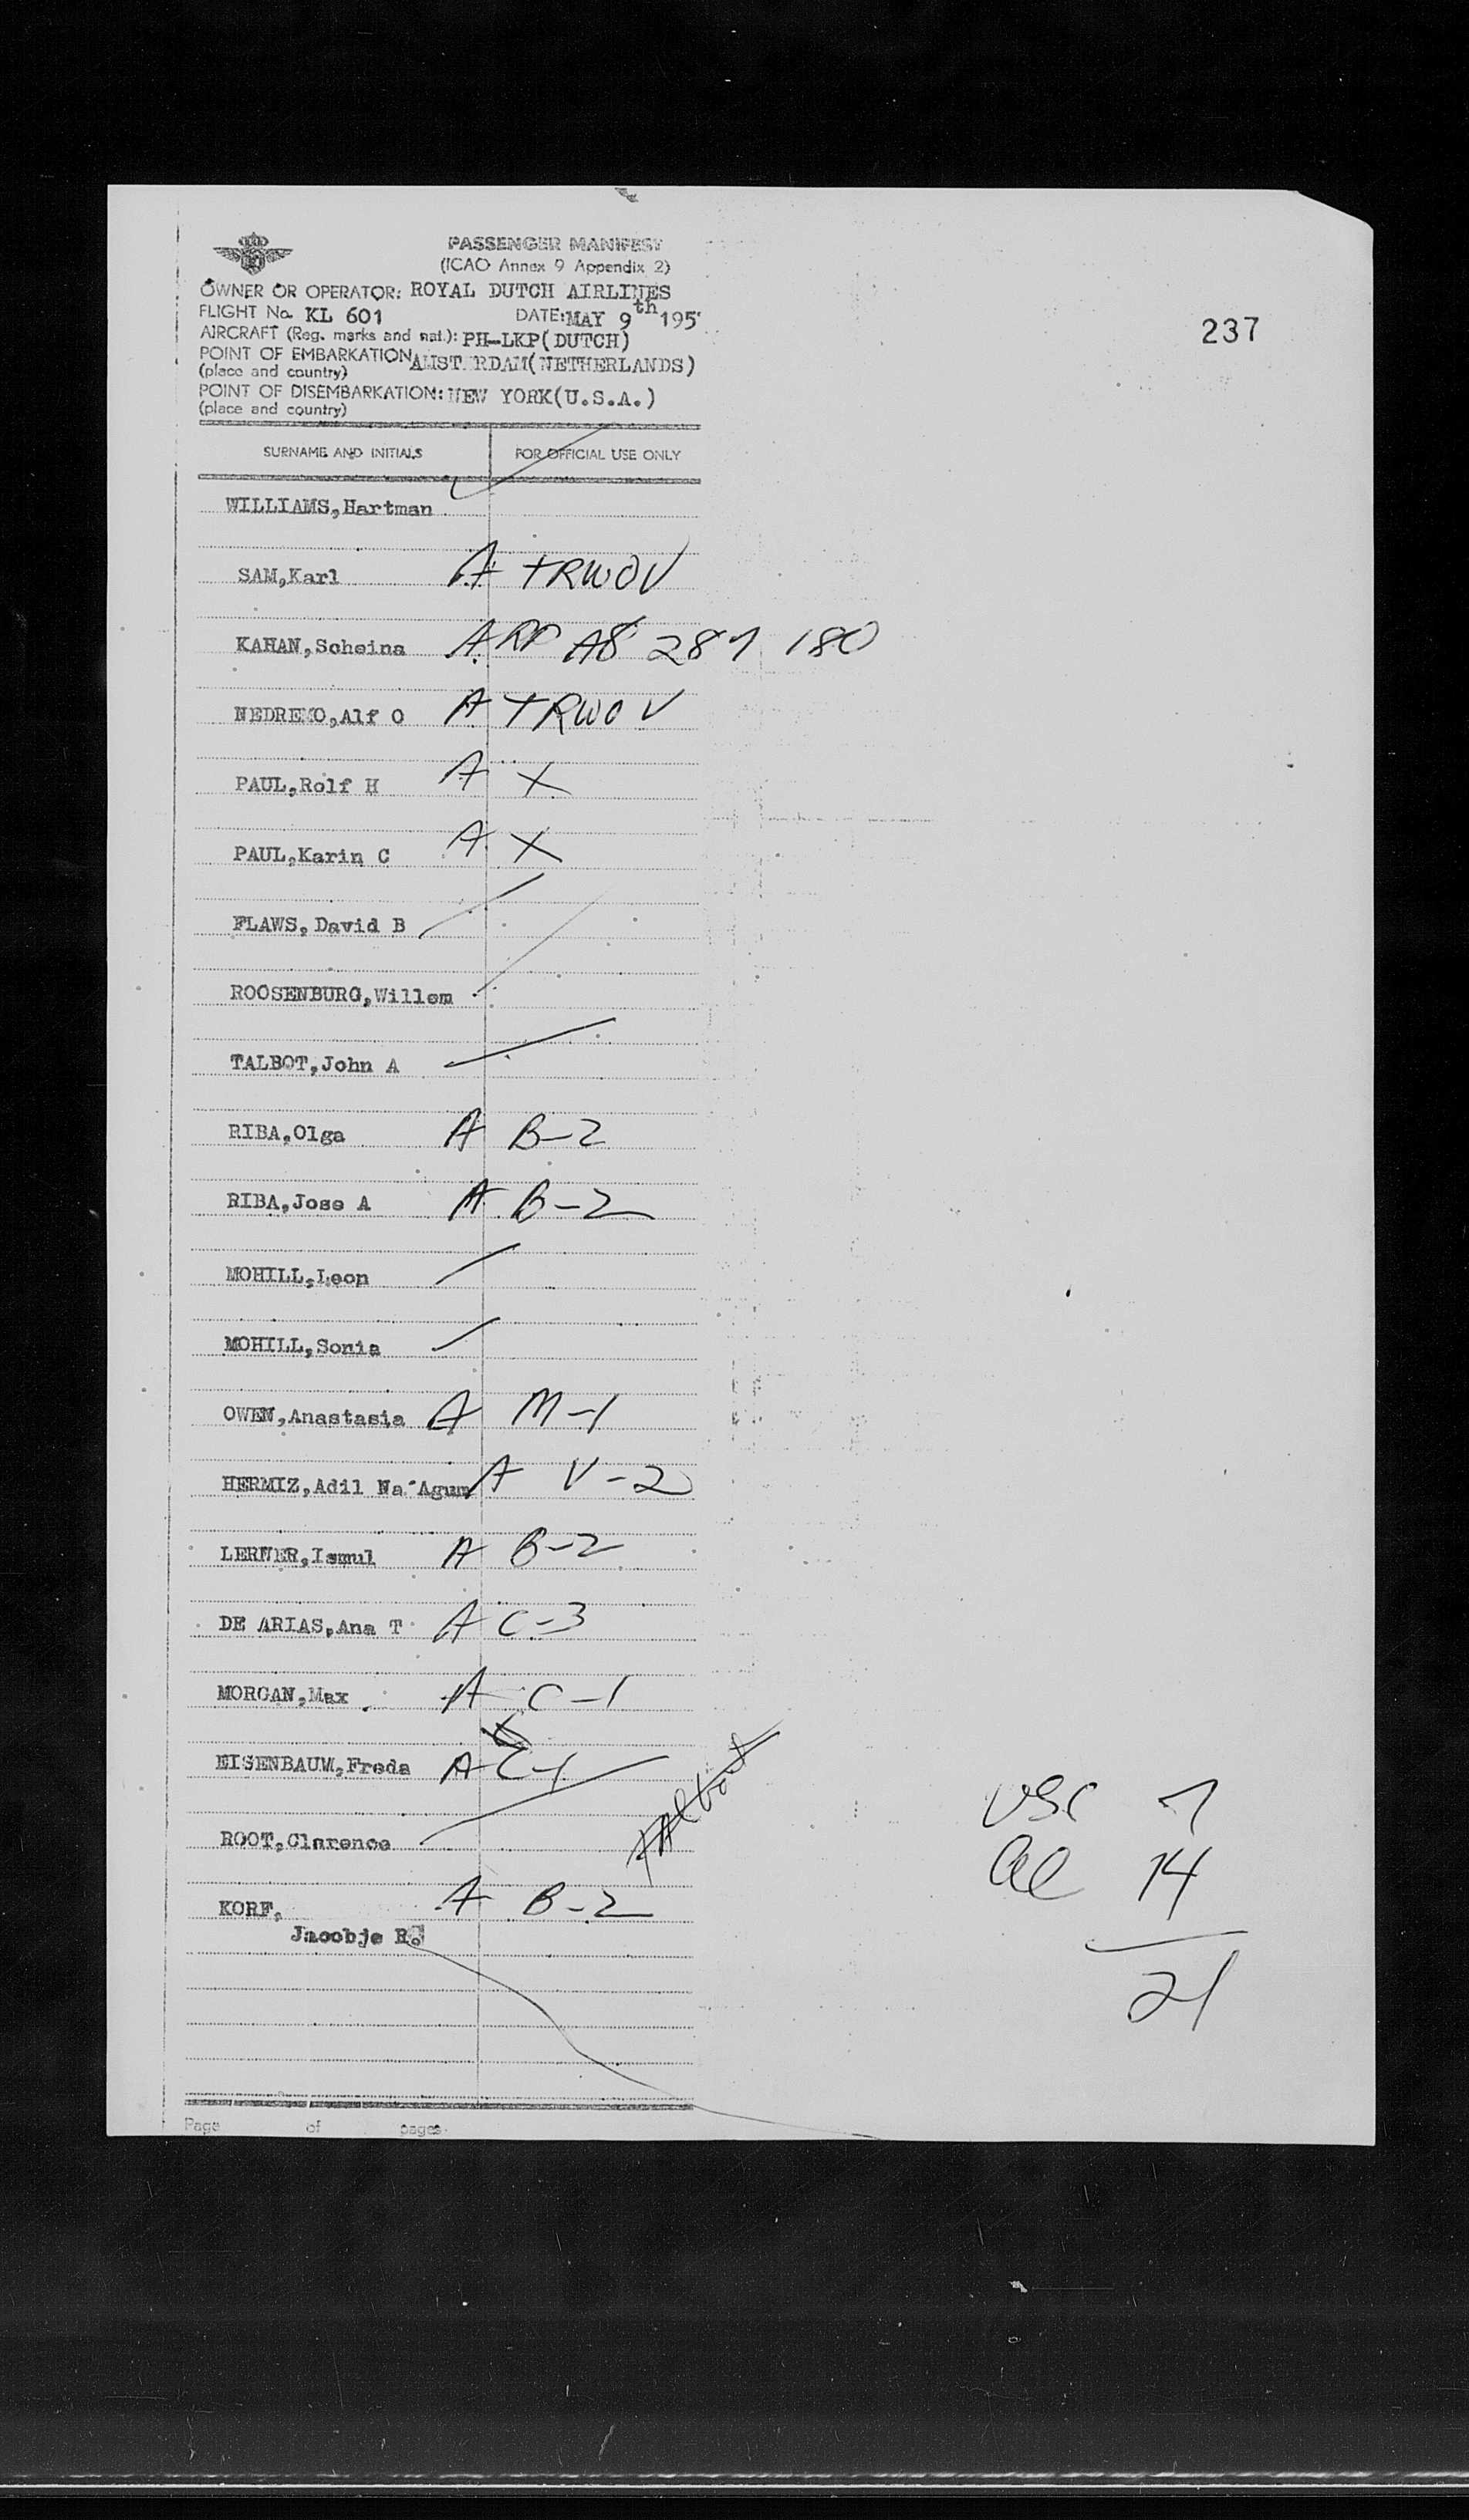 PASSENGER MANIFEST
(ICAO Annex 9 Appendix 2)
OWNER OR OPERATOR: ROYAL DUTCH AIRLINES
FLIGHT No. KL 601 DATE: MAY 9th 195
237
AIRCRAFT (Reg. marks and nat.): PH-LKP(DUTCH)
POINT OF EMBARKATION AMST RDAM(NETHERLANDS)
(place and country)
POINT OF DISEMBARKATION: NEW YORK(U.S.A.)
(place and country)
SURNAME AND INITIALS FOR OFFICIAL USE ONLY
WILLIAMS,Hartman
SAM,Karl A TRWOV
KAHAN,Scheina A RP A8 287 180
NEDREMO,Alf O A TRWOV
PAUL,Rolf H A X
PAUL,Karin C A X
FLAWS,David B
ROOSENBURG,Willem
TALBOT,John A
RIBA,Olga A B-2
RIBA,Jose A A B-2
MOHILL,Leon
MOHILL,Sonia
OWEN,Anastasia A M-1
HERMIZ,Adil Na Agum A V-2
LERNER,Ismul A B-2
DE ARIAS,Ana T A C-3
MORGAN,Max A C-1
EISENBAUM,Freda A C-1
USC 7
ROOT,Clarence
al 14
KORF, A B-2
Jacobje R.
21
Page of pages